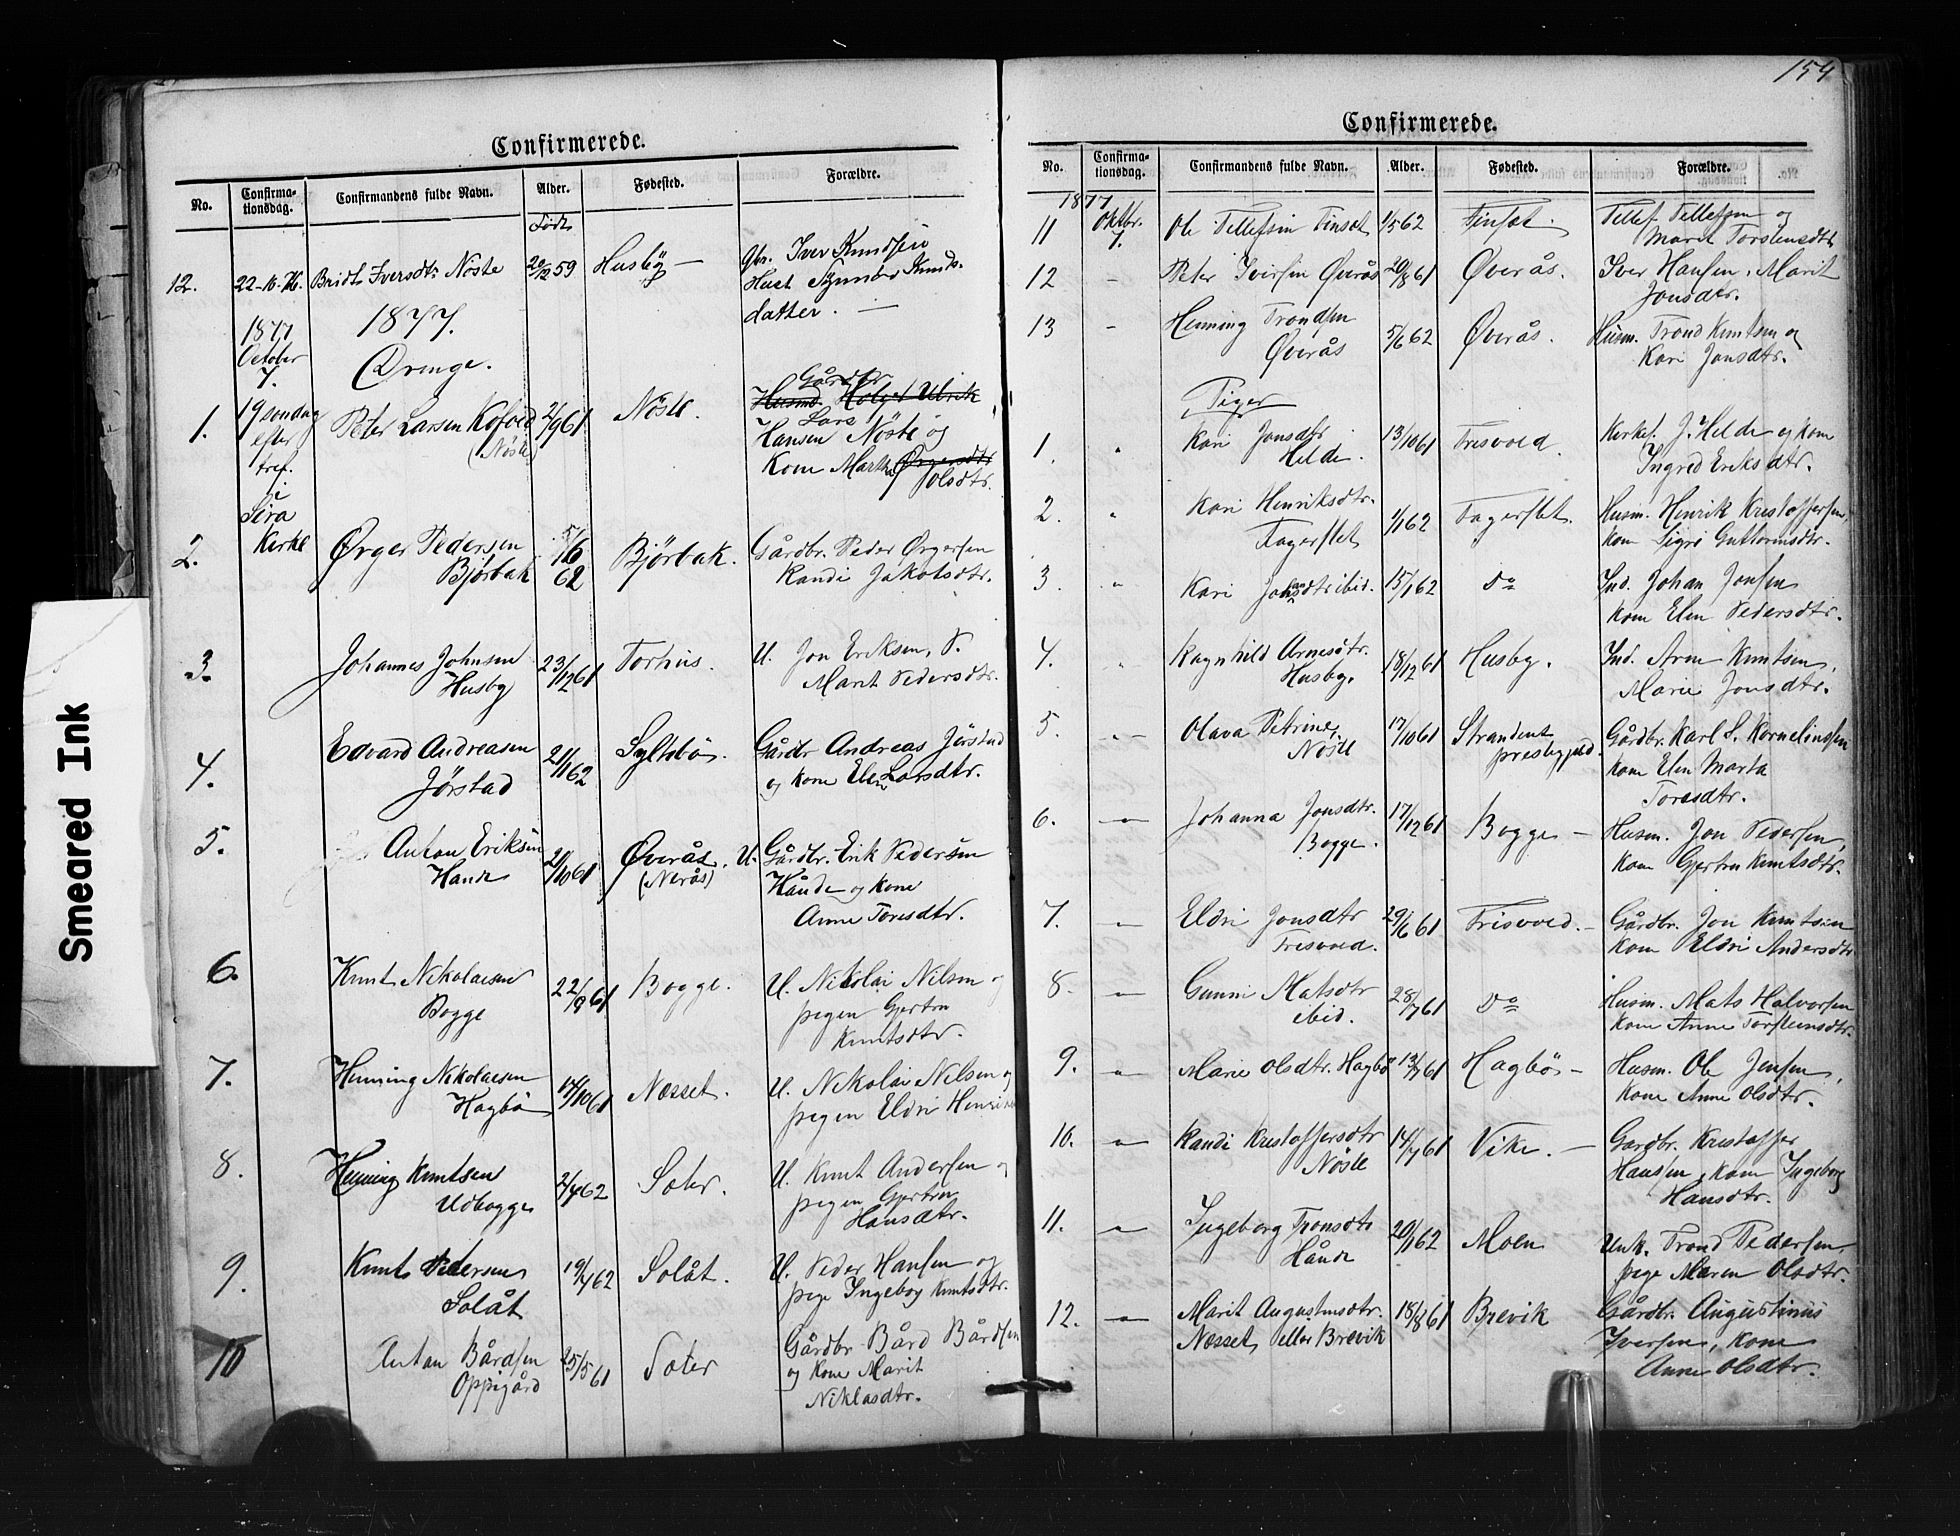 Confirmerede.
No. Confirma-tionsdag. Confirmandens fulde Navn. Alder. Fødested. Forældre.
Født
12. 22-10-76. Bridt Iversdtr Nöste 20/12 59 Husby — Gbr. Iver Knudsen
Hust Synnøv Knuds-
datter. —
1877 1877.
October Drenge.
7.
1. 19 søndag Peter Larsen Kofoed 2/9 61 Nöste Gårdbr
efter (Nöste) Husmd. Holger Ulrik
tref. Lars
i Hansen Nöste og
Sira Kone Marthe Ørgersdtr
Kirke Jolsdtr.
2. Ørger Pedersen 5/6 Bjørbak. Gårdbr. Peder Ørgersen
Bjørbak 62 Randi Jakobsdtr.
3. Johannes Johnsen 23/12 61 Torhus. U. Jon Eriksen, P.
Husby Marit Pedersdtr.
4. Edvard Andreasen 21/1 62 Syltebö. Gårdbr Andreas Jörstad
Jörstad og kone Elen Larsdtr.
5. Anton Eriksen 20/10 61 Øverås. U. Gårdbr. Erik Pedersen
Hande (Nerås) Hånde og kone
Anne Toresdtr.
6. Knut Nikolaisen 22/9 61 Bogge. U. Nikolai Nilsen og
Bogge pigen Gjertru
Knutsdtr.
7. Henning Nikolaisen 14/10 61 Næsset. U. Nikolai Nilsen og
Hagbö pigen Eldri Henri
8. Henning Knutsen 2/4 62 Soter. U. Knut Andersen og
Udbogge pigen Gjertru
Hansdtr.
9. Knut Pedersen 19/4 62 Solåt. U. Peder Hansen og
Solåt pige Ingeborg Knutsdtr.
10 Anton Bårdsen 25/5 61 Soter Gårdbr Bård Bårdsen
Oppigård og kone Marit
Niklasdtr.
154
Confirmerede.
No. Confirma-tionsdag. Confirmandens fulde Navn. Alder. Fødested. Forældre.
1877
11 Oktbr. Ole Tellefsen Tinset 1/5 62 Finset. Tellef Tellefsen og
7. Marit Torstensdtr
12 - Peter Iversen Øverås 20/8 61 Øverås. Iver Hansen, Marit
Jonsdtr.
13 - Henning Trondsen 5/6 62 Øverås. Husm. Trond Knutsen og
Øverås Kari Jonsdtr.
Piger
1. " Kari Jonsdtr 13/10 61 Frisvold. Kirkes. J. Helde og kone
Helde. Ingrid Eriksdtr.
2. " Kari Henriksdtr. 1/1 62 Fagerslet. Husm. Henrik Kristoffersen,
Fagerslet kone Sigri Guttormsdtr.
3. " Kari Johansdtr ibid. 15/1 62 Do Ind. Johan Jonsen
kone Elen Pedersdtr.
4. " Ragnhild Arnesdtr. 18/12 61 Husby. Ind. Arne Knutsen,
Husby. Marie Jonsdtr.
5. " - Olava Petrine, 17/10 61 Strandens Gårdbr. Karl S. Kornelinssen
Nöste presbygjeld. kone Elen Marta
Toresdtr.
6. - Johanna Jonsdtr. 17/12 61 Bogge — Husm. Jon Pedersen,
Bogge. kone Gjertru Knutsdtr.
7. - Eldri Jonsdtr 29/6 61 Frisvold. - Gårdbr. Jon Knutsen
Frisvold. kone Eldri Andersdtr
8. - Gunni Matsdtr 28/7 61 Do Husm. Mats Halvorsen
ibid. kone Anne Torsteinsdtr.
9. - Marie Olsdtr. Hagbö 13/7 61 Hagbö - Husm. Ole Jensen,
kone Anne Olsdtr.
10. - Randi Kristoffersdtr 14/7 61 Vike. — Gardbr. Kristoffer
Nöste Hansen, kone Ingeborg
Hansdtr.
11. - Ingeborg Tronsdtr 20/1 62 Moen Unk. Trond Pedersen,
Hånde pige Maren Olsdtr.
12. - Marit Augustinusdtr. 18/8 61 Brevik Gårdbr. Augustinus
Næsset eller Brevik Iversen, kone
Anne Olsdtr.
Smeared Ink